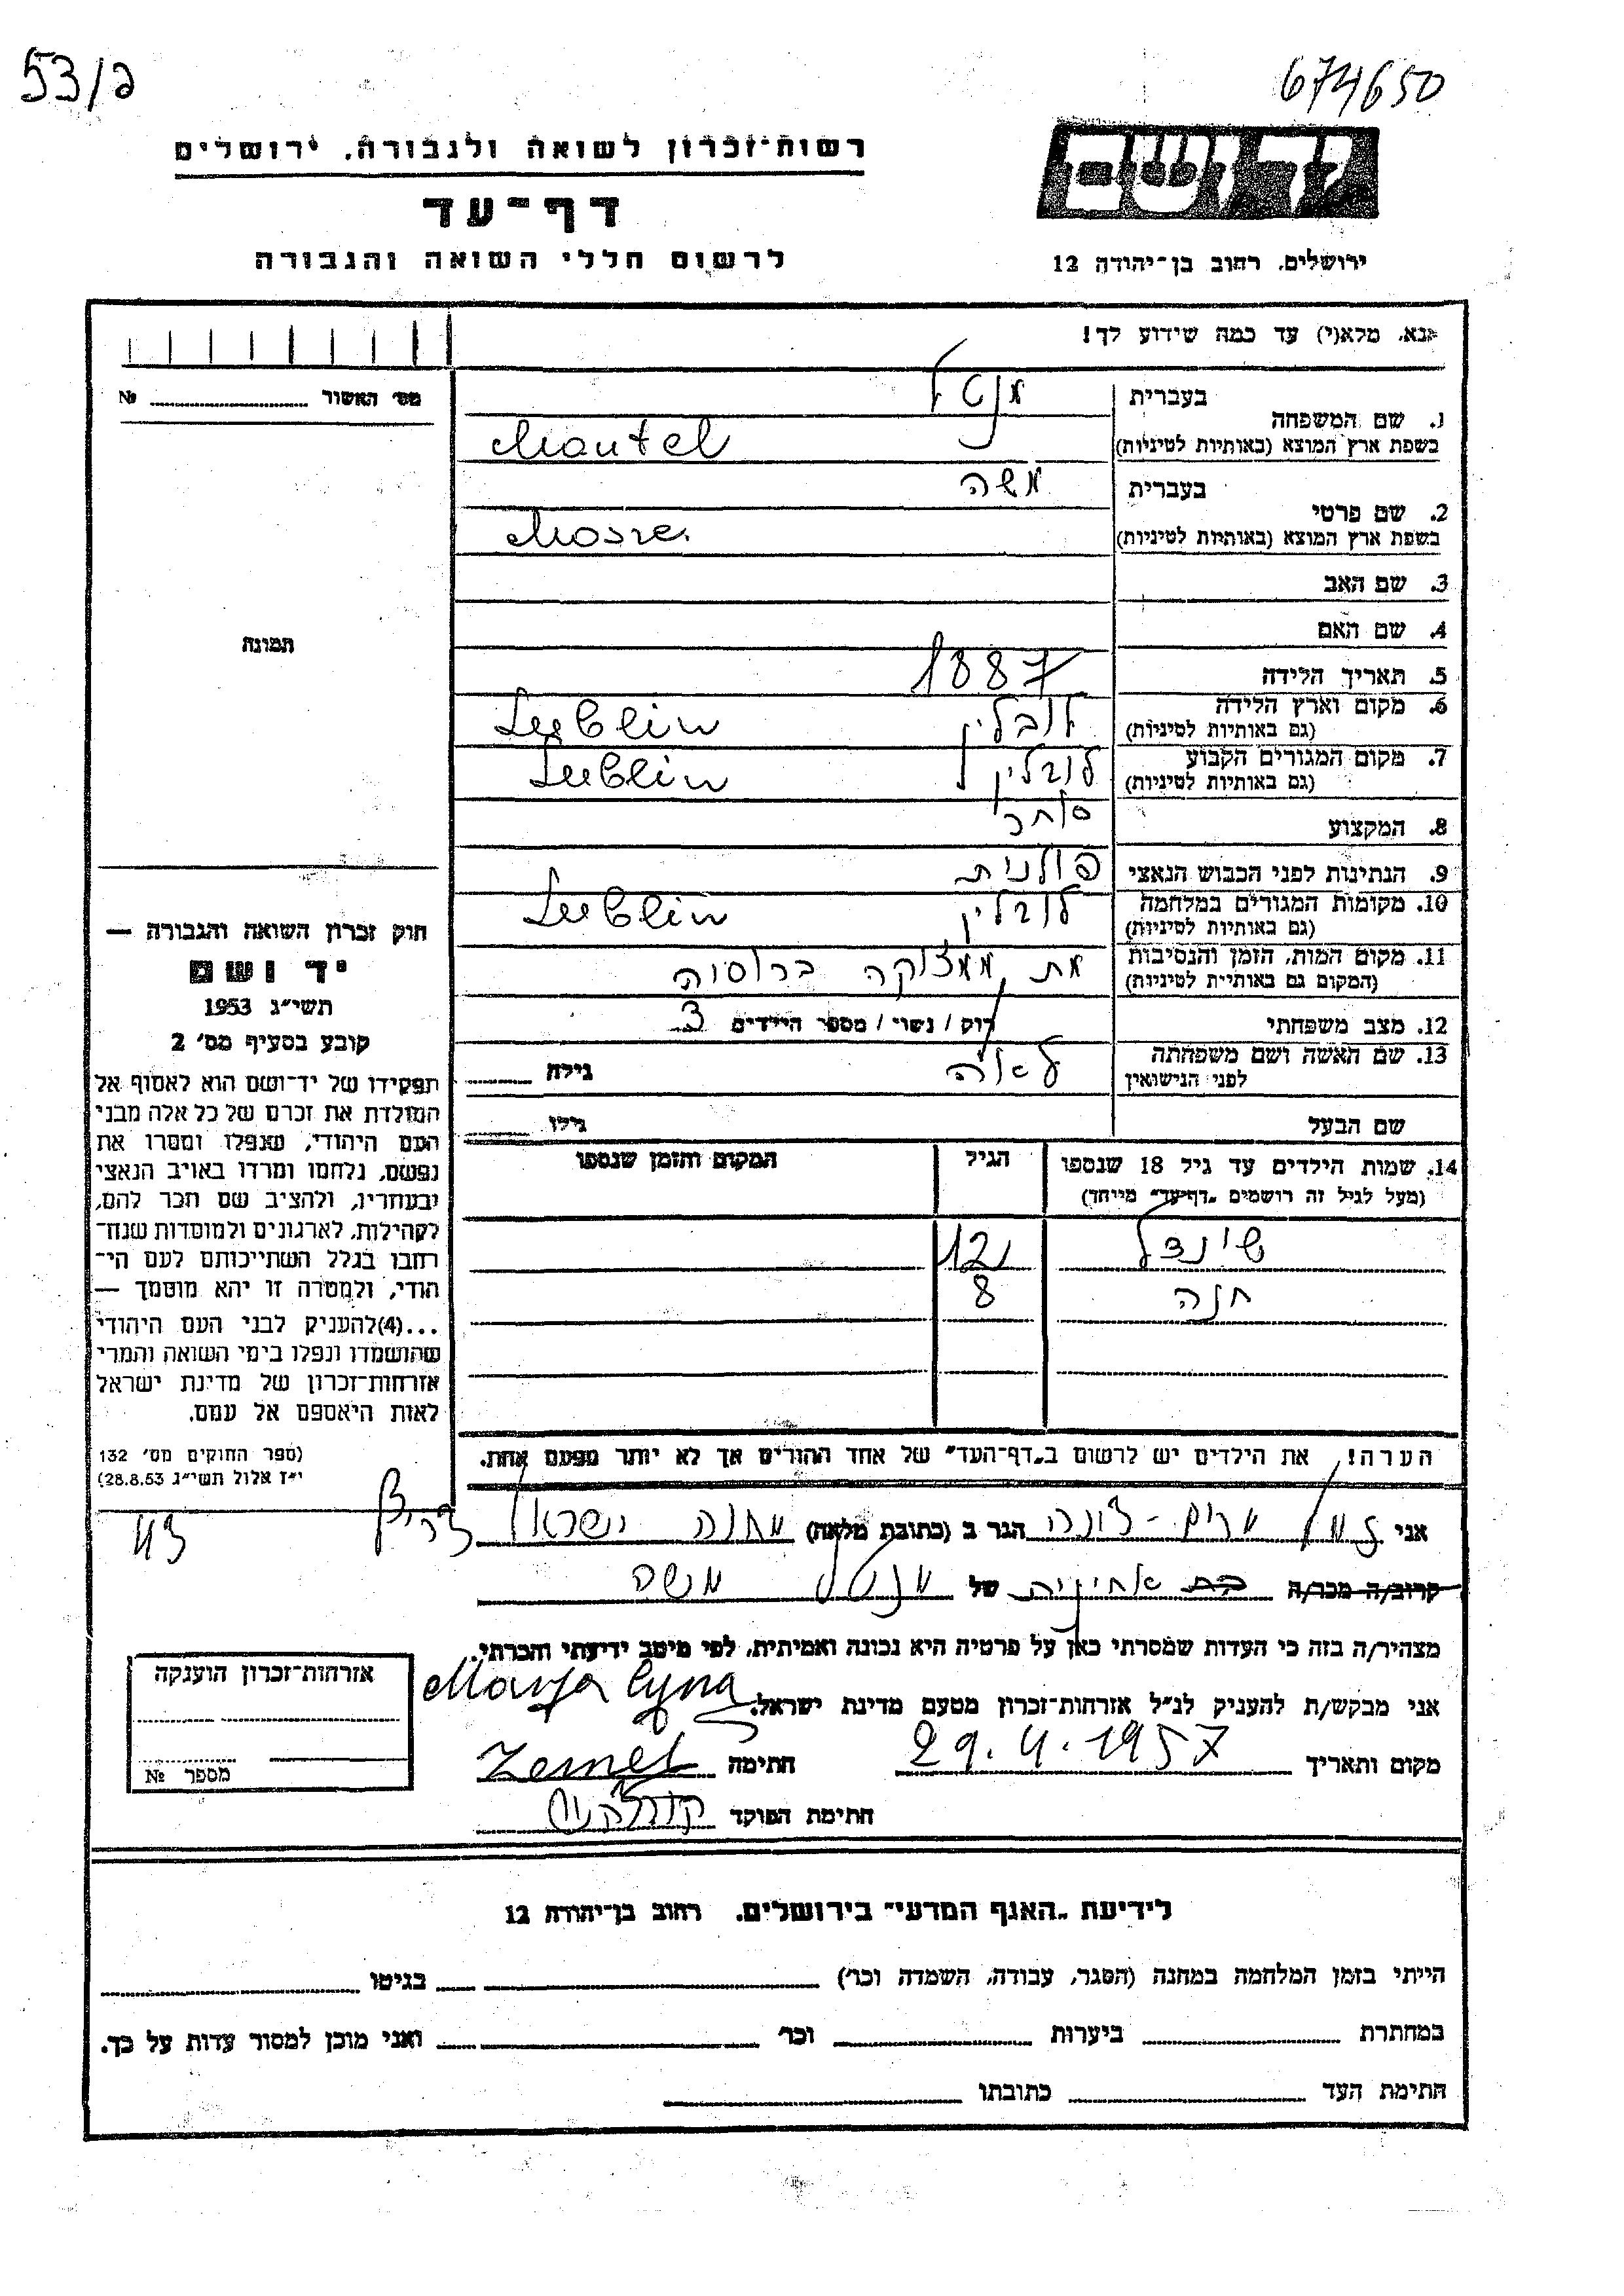 53/ג
674650
רשות־זכרון לשואה ולגבורה, ירושלים
דף־עד
לרשום חללי השואה והגבורה
יד ושם
ירושלים, רחוב בן־יהודה 12
אנא, מלא(י) עד כמה שידוע לך!
מס׳ האשור № 
1. שם המשפחה
בעברית
מנטל
בשפת ארץ המוצא (באותיות לטיניות)
Mantel
2. שם פרטי
בעברית
משה
בשפת ארץ המוצא (באותיות לטיניות)
3. שם האב
4. שם האם
תמונה
5. תאריך הלידה
1887
6. מקום וארץ הלידה
(גם באותיות לטיניות)
לובלין Lublin
7. מקום המגורים הקבוע
(גם באותיות לטיניות)
לובלין Lublin
8. המקצוע
סוחר
9. הנתינות לפני הכבוש הנאצי
פולנית
10. מקומות המגורים במלחמה
(גם באותיות לטיניות)
לובלין Lublin
11. מקום המות, הזמן והנסיבות
(המקום גם באותיות לטיניות)
מת ממצוקה ברוסיה
12. מצב משפחתי
רוק / נשוי / מספר הילדים 3
13. שם האשה ושם משפחתה
לפני הנישואין
לאה
גילה
שם הבעל
גילו
14. שמות הילדים עד גיל 18 שנספו
(מעל לגיל זה רושמים „דף־עד״ מייחד)
הגיל
המקום והזמן שנספו
שינדל 12
חנה 8
הערה! את הילדים יש לרשום ב„דף־העד״ של אחד ההורים אך לא יותר מפעם אחת.
חוק זכרון השואה והגבורה —
יד ושם
תשי״ג 1953
קובע בסעיף מס׳ 2
תפקידו של יד־ושם הוא לאסוף אל
המולדת את זכרם של כל אלה מבני
העם היהודי, שנפלו ומסרו את
נפשם, נלחמו ומרדו באויב הנאצי
ובעוזריו, ולהציב שם וזכר להם,
לקהילות, לארגונים ולמוסדות שנח־
רבו בגלל השתייכותם לעם הי־
הודי, ולמטרה זו יהא מוסמך —
...(4)להעניק לבני העם היהודי
שהושמדו ונפלו בימי השואה והמרי
אזרחות־זכרון של מדינת ישראל
לאות היאספם אל עמם.
(ספר החוקים מס׳ 132
י״ז אלול תשי״ג 28.8.53)
אני הגר ב (כתובת מלאה) מחנה ישראל צריף
43
קרוב/ה מכר/ה בת אחינית של מנטל משה
מצהיר/ה בזה כי העדות שמסרתי כאן על פרטיה היא נכונה ואמיתית, לפי מיטב ידיעתי והכרתי.
אני מבקש/ת להעניק לנ״ל אזרחות־זכרון מטעם מדינת ישראל.
מקום ותאריך 29.4.1957 חתימה Zemel
חתימת הפוקד
אזרחות־זכרון הוענקה
מספר №
לידיעת „האגף המדעי״ בירושלים, רחוב בן־יהודה 12
הייתי בזמן המלחמה במחנה (הסגר, עבודה, השמדה וכר׳) בגיטו
במחתרת ביערות וכר׳ ואני מוכן למסור עדות על כך.
חתימת העד כתובתו